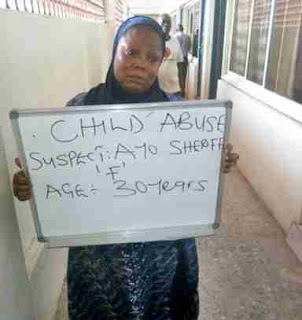 CHILD ABUSE
SUSPECT: AYO SHERIFF
'F'
AGE: 30 years